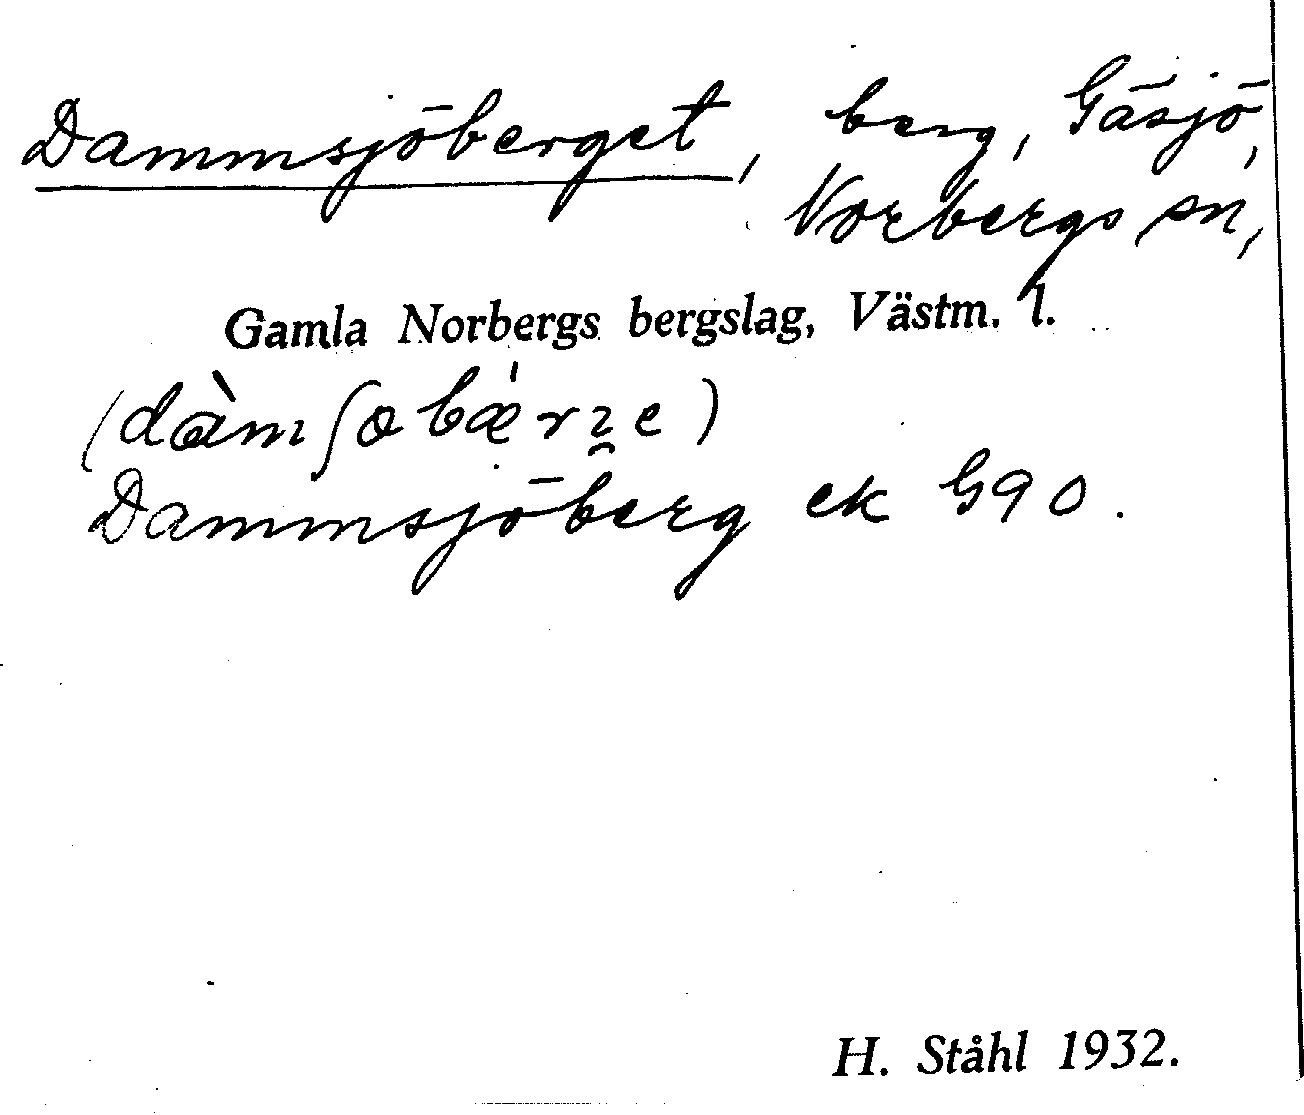 Dammsjöberget, berg, Gäsjö,
Norbergs sn,
Gamla Norbergs bergslag, Västm. l.
Dammsjöberg ek G90.
H. Ståhl 1932.